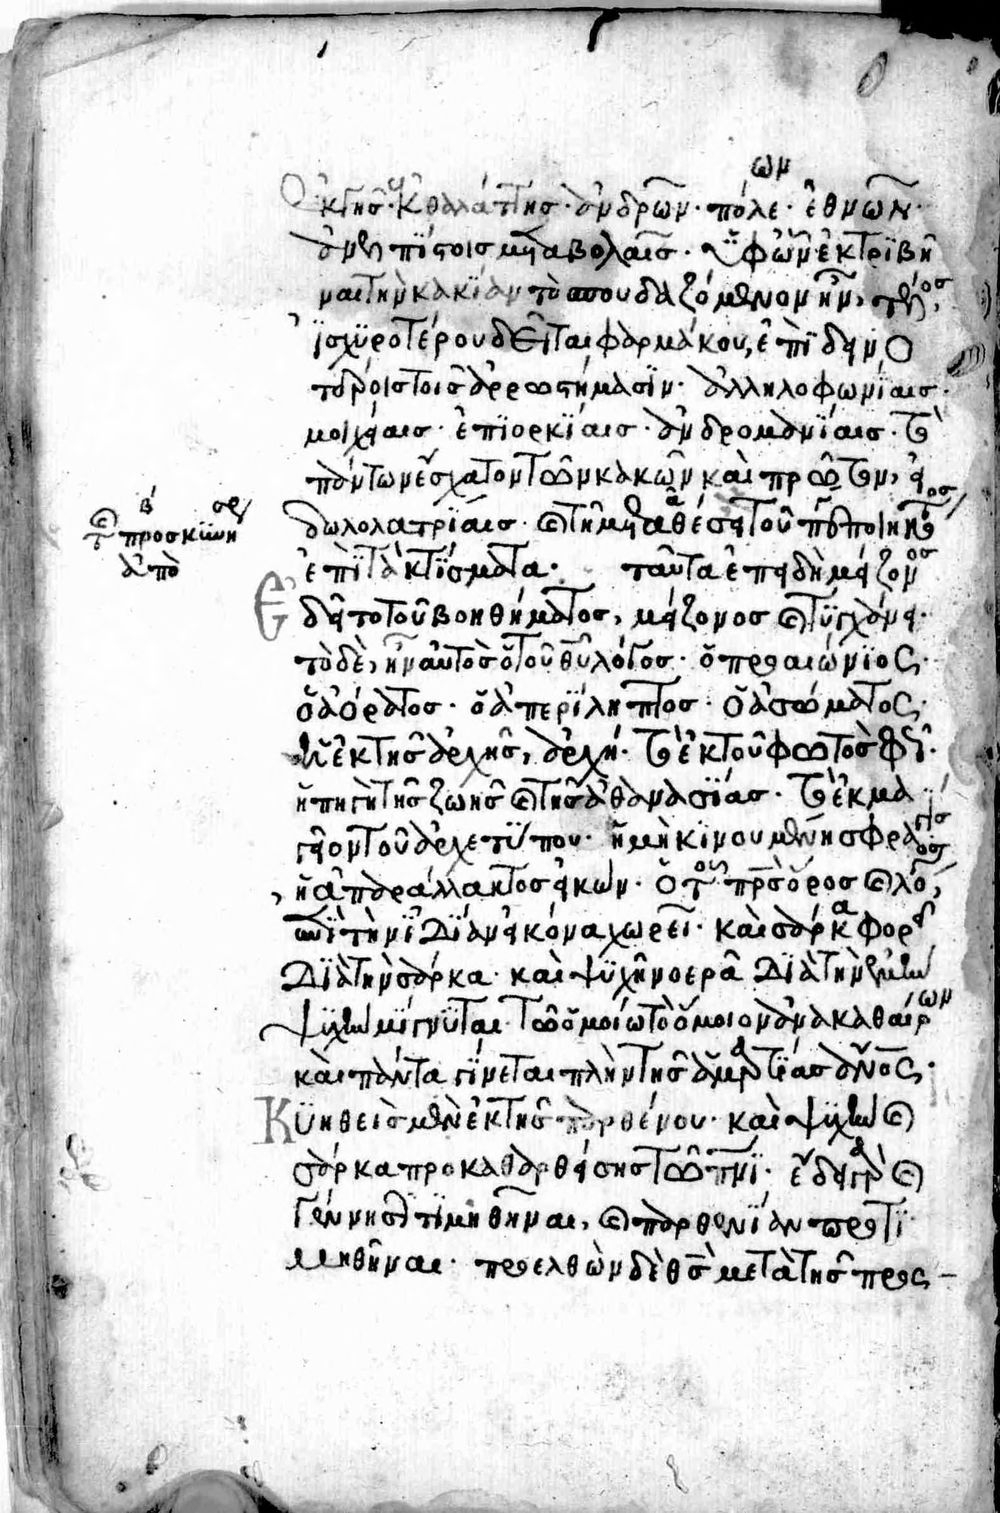 ἐκ γῆς· ἐκ θαλάττης· ἀνδρῶν· πόλεων· ἐθνῶν·
ἀνεπίστοις μεταβολαῖς· ὑφ' ὧν ἐκτριβῆ
ναι τὴν κακίαν τὸ σπουδαζόμενον ἦν, τέλος
ἰσχυροτέρου δεῖται φαρμάκου, ἐπὶ δεινο
τέροις τοῖς ἀρρωστήμασιν· ἀλληλοφονίαις·
μοιχείαις· ἐπιορκίαις· ἀνδρομανίαις· τὸ
πάντων ἔσχατον τῶν κακῶν καὶ πρῶτον, εἰ
δωλολατρίαις· καὶ τῇ μεταθέσει τοῦ ποιήσαντος
τῆς προσκυνήσεως
ἀπὸ
ἐπὶ τὰ κτίσματα· ταῦτα ἐπειδὴ μείζονος
ἐδεῖτο τοῦ βοηθήματος, μείζονος καὶ τυγχάνει·
τὸ δὲ, ἦν αὐτὸς ὁ τοῦ θυ λόγος· ὁ προαιώνιος·
ὁ ἀόρατος· ὁ ἀπερίληπτος· ὁ ἀσώματος·
ἡ ἐκ τῆς ἀρχῆς, ἀρχή· τὸ ἐκ τοῦ φωτὸς φῶς·
ἡ πηγὴ τῆς ζωῆς καὶ τῆς ἀθανασίας· τὸ ἐκμα
γεῖον τοῦ ἀρχετύπου· ἡ μὴ κινουμένη σφραγὶς
ἡ ἀπαράλλακτος εἰκών· ὁ τοῦ πρς ὅρος καὶ λόγος,
ἐπὶ τὴν ἰδίαν εἰκόνα χωρεῖ· καὶ σάρκα φορεῖ
διὰ τὴν σάρκα· καὶ ψυχῇ νοερᾷ διὰ τὴν ἐμὴν
ψυχὴν μίγνυται· τῷ ὁμοίῳ τὸ ὅμοιον ἀνακαθαίρων
καὶ πάντα γίνεται πλὴν τῆς ἁμαρτίας ἄνος·
Κυηθεὶς μὲν ἐκ τῆς παρθένου· καὶ ψυχὴν καὶ
σάρκα προκαθαρθείσης τῷ πνι· ἔδει γὰρ καὶ
γέννησιν τιμηθῆναι, καὶ παρθενίαν προτι
μηθῆναι· προελθὼν δὲ θς μετὰ τῆς προς